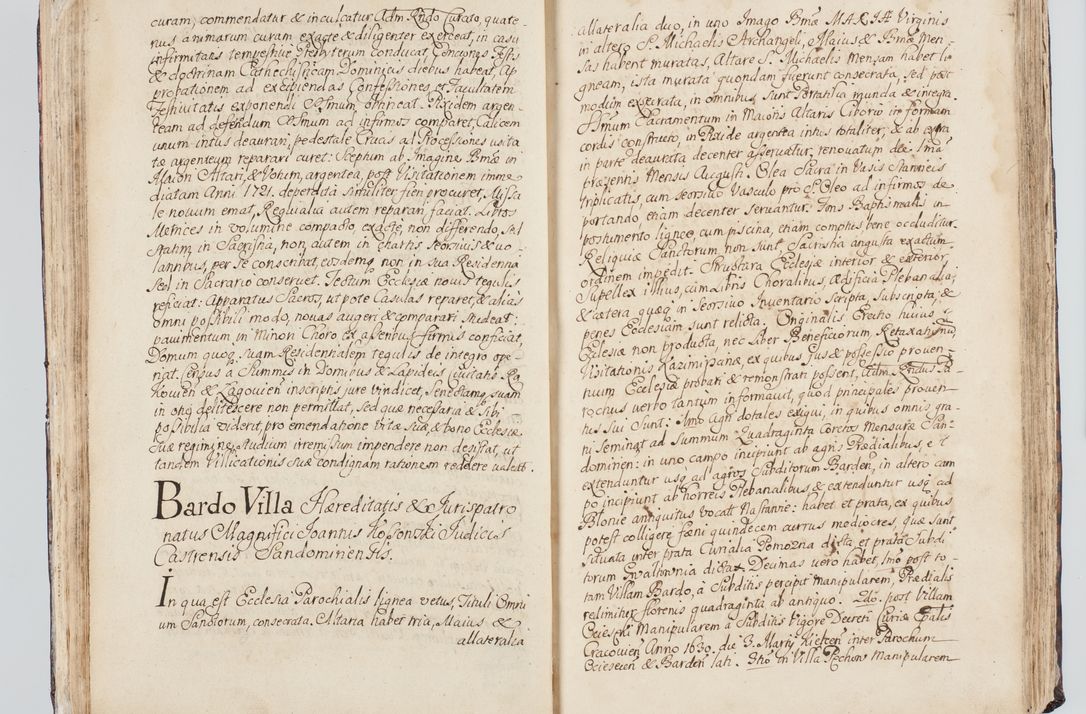 curam, commendatur & inculcatur Adm. Rndo Curato, quate-
nus animarum curam exacte & diligenter exerceat, in casu
infirmitatis tempestive Presbyterum conducat, Conciones Festis
& doctrinam Cathechisticam Dominicis diebus habeat, Ap
probationem ad excipiendas Confessiones, et Facultatem
Festivitatis exponendi SSmum obtineat. Pixidem argen-
team ad deferendum SSmum ad infirmos comparet, Calicem
unum intus deaurari, pedestale Crucis ad Processiones usita
tæ argenteum reparari curet: Sceptum ab Imagine Bmæ in
Maiori Altari, & Votum, argentea, post Visitationem imme
diatam Anni 1721. deperdita similiter fieri procuret, Missa
le novum emat, Requialia autem reparari faciat. Libros
Metrices in volumine compacto, exacte, non differendo, sed
statim in Sacristia, non autem in chartis seorsivis & vo-
lantibus, per se conscribat, eosdemq non in sua Residentia
sed in Sacrario conservet. Tectum Ecclesiæ novis tegulis
reficiat: Apparatus Sacros, ut pote Casulas reparet, & alias
omni possibili modo, novas augeri & comparari studeat:
pavimentum in Minori Choro ex asseribus firmis conficiat,
Domum quoq suam Residentialem tegulis de integro ope-
riat. Census a Summis in Domibus & Lapideis Civitatis Ra
kovien & Lagovien inscriptis jure vindicet, Senectamq suam
in otiq delitescere non permittat, sed quæ necessaria & sibi
possibilia viderit, pro emendatione vitæ suæ, & bono Ecclesiæ
suæ regimine, studium irremissum impendere non desistat, ut
tandem Villicationis suæ condignam rationem reddere valeat.
Bardo Villa Hæreditatis & Jurispatro
natus Magnifici Joannis Kossowski Judicis
Castrensis Sandomiriensis.
In qua est Ecclesia Parochialis lignea vetus, Tituli Omni
um Sanctorum, consecrata. Altaria habet tria, Maius &
allateralia
allateralia duo, in uno Imago Bmæ MARIÆ Virginis
in altero S. Michaelis Archangeli, Maius & Bmæ Men-
sas habent muratas, Altare S. Michaelis Mensam habet li-
gneam, ista murata quondam fuerunt consecrata, sed post
modum execrata, in omnibus sunt Portatilia munda & integra.
SSmum Sacramentum in Maioris Altaris Ciborio in formam
cordis constructo, in Pixide argentea intus totaliter, & ab extra
in parte deaurata decenter asservatur, renovatum die 1ma
præsentis Mensis Augusti. Olea Sacra in Vasis Stanneis
triplicatis, cum seorsivo Vasculo pro S. Oleo ad infirmos de
portando etiam decenter servantur. Fons Baptismalis in
postumento ligneo, cum piscina, etiam compties bene occluditur.
Reliquiæ Sanctorum non sunt. Sacristia angusta exactum
ordinem impedit. Structura Ecclesiæ interior & exterior,
Supellex illius, cum Libris Choralibus, Ædificia Plebanalia,
& cætera quæq in seorsivo Inventario scripta, subscripta, &
penes Ecclesiam sunt relicta. Originalis Erectio huius
Ecclesiæ non producta, nec Liber Beneficiorum Retaxationu
Visitationis Kazimiriana, ex quibus Jus & possessio proven-
tuum Ecclesiæ probari & remonstrari possent, Adm. Rndus Pa-
rochus verbo tantum informavit, quod principales proven
tus sui sunt: Imo Agri dotales exigui, in quibus omnis gra-
ni seminat ad Summum Quadraginta Coretos Mensuræ San-
domirien: in uno campo incipiunt ab agris Prædialibus, et
extenduntur usq ad agros Subditorum Barden, in altero cam
po incipiunt ab horreis Plebanalibus & extenduntur usq ad
Blonie antiquitus vocatt Nastawie: habet et prata, ex quibus
potest colligere fœni quindecem currus mediocres, quæ sunt
situata inter prata Curialia Pomorzna dicta et prata Subdi
torum dicta. Decimas vero habet, Imo post to-
tam Villam Bardo, à Subditis percipit manipularem, Prædialis
redimitur florenus quadraginta ab antiquo. 2do. post Villam
Manipularem à Subditis vigore Decreti Curiæ Eppalis
Cracovien Anno 1630. die 3. Martij Kielcen inter Parochum
& Barden lati. 3tio in Villa Manipularem